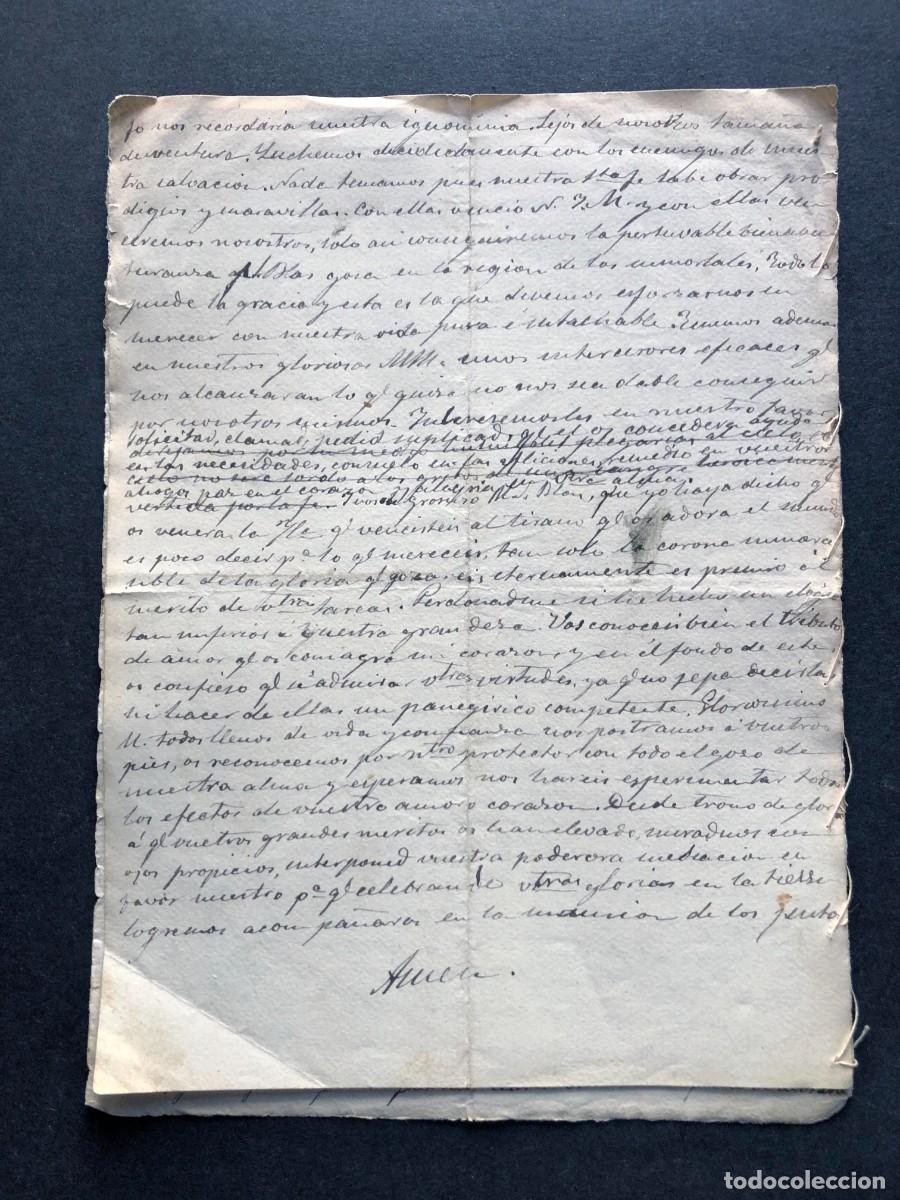 jo nos recordaria nuestra ignominia. Lejos de nosotros tamaña
desventura. Luchemos decididamente con los enemigos de nues
tra salvacion. Nada temamos pues nuestra Sta fe sabe obrar pro
digios y maravillas. Con ellas vencio N. I. M. y con ellas ven
dremos nosotros, solo asi conseguiremos la perdurable bienaven
turanza q. Blas gosa en la region de los inmortales. Todo lo
puede la gracia y esta es la que devemos esforzarnos en
merecer con nuestra vida pura é intachable. Tenemos ademas
en nuestros gloriosos MM. unos intercesores eficaces q.
nos alcanzaran lo q. quiza no nos sea dable conseguir
por nosotros mismos. en nuestro favor
solicitad, clamad, pedid suplicad, q. el os concedera ayuda
en las necesidades, consuelo en las aflicciones, remedio en vuestros
ahogos paz en el corazon y alegria en el alma.
vertida por la fe. Blas, que yo haya dicho q.
os venera la q. vencisteis al tirano q. os adora el mundo
es poco decir pa. lo q. mereceis, tan solo la corona inmarce
sible de la gloria q. gozareis eternamente es premio al
merito de vtras tareas. Perdonadme si he hecho un elogio
tan inferior a vuestra grandeza. Vos conoceis bien el tributo
de amor q. os consagra mi corazon, y en él fondo de este
os confieso q. sé admirar vtras virtudes, ya q. no sepa decirlas
ni hacer de ellas un panegirico competente. Gloriosisimo
M. todos llenos de vida y confianza nos postramos á vuetros
pies, os reconocemos por ntro protector con todo el gozo de
nuestra alma y esperamos nos hareis esperimentar todos
los efectos de vuestro amoro corazon. Desde trono de glor
á q. vuetros grandes meritos os han elevado, miradnos con
ojos propicios, interponed vuestra poderosa mediacion en
favor nuestro pa. q. celebrando vtras glorias en la tierra
logremos acompañaros en la mansion de los justos
Amen.
todocoleccion